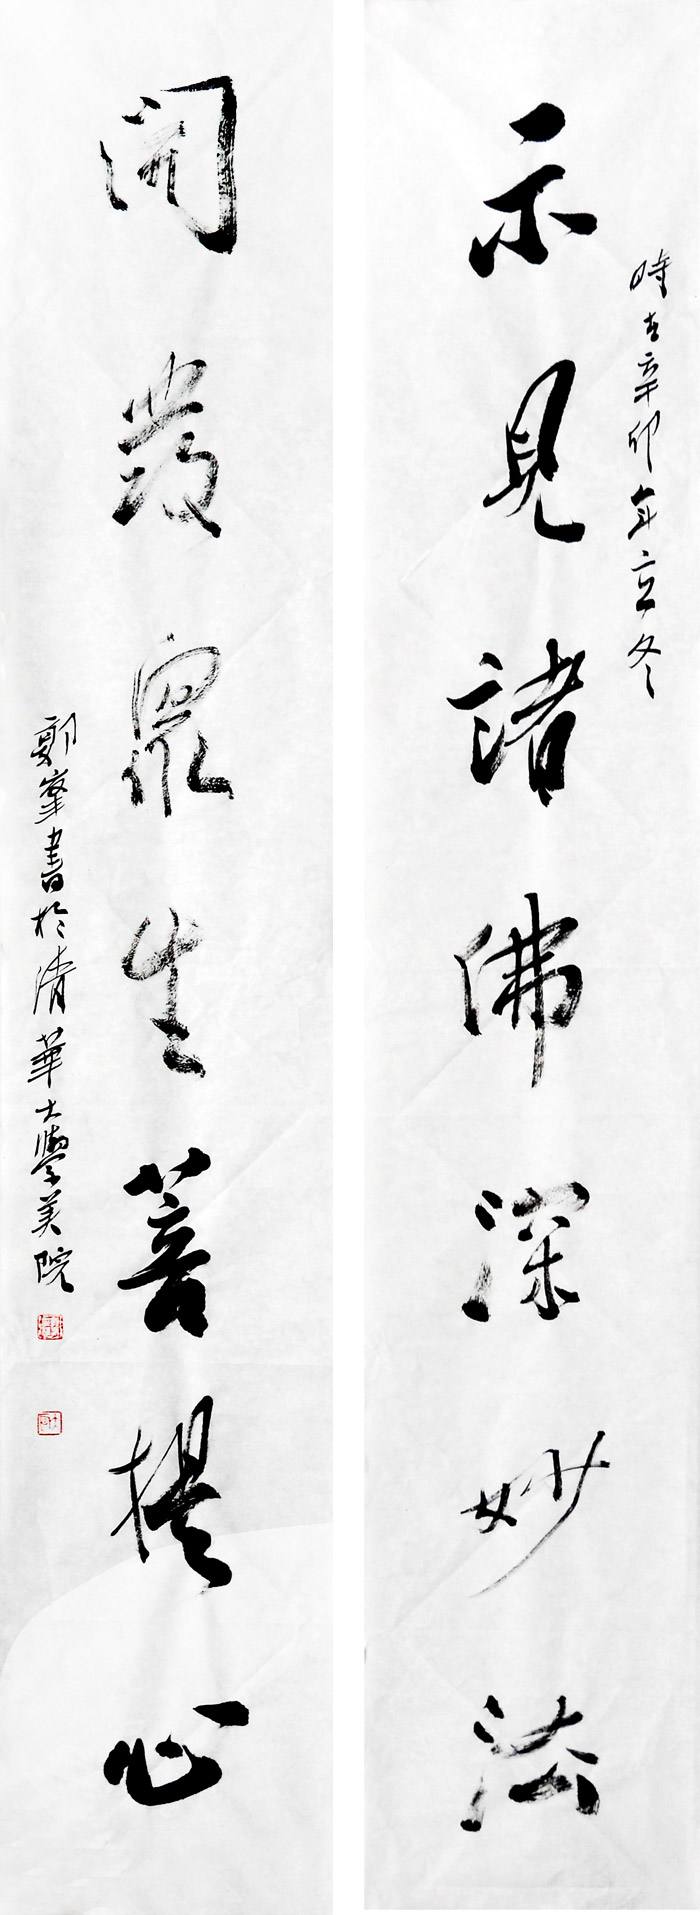 時在辛卯年立冬
示見諸佛深妙法
開發眾生菩提心
鄭峯書於清華大學美院